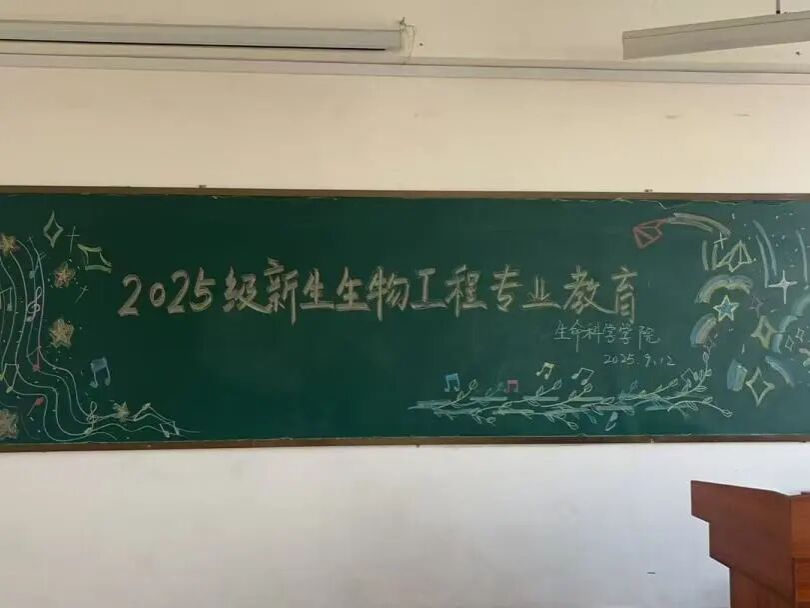 2025级新生生物工程专业教育
生命科学学院
2025.9.12